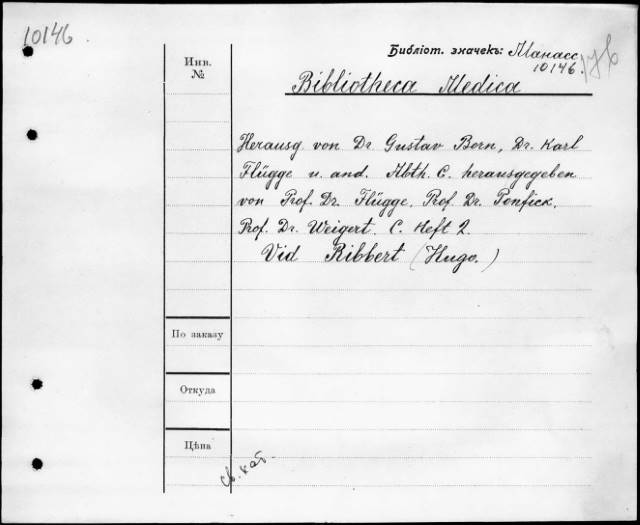 10146.
Библіот. значекъ: Манасс
10146.
Инв.
№
Bibliotheca Medica
Herausg. von Dr. Gustav Born, Dr. Karl
Flügge u. and. Abth. C. herausgegeben
von Prof. Dr. Flügge. Prof. Dr. Ponfick.
Prof. Dr. Weigert. C. Heft 2.
Vid Ribbert (Hugo.)
По заказу
Откуда
Цѣна
св. кат.